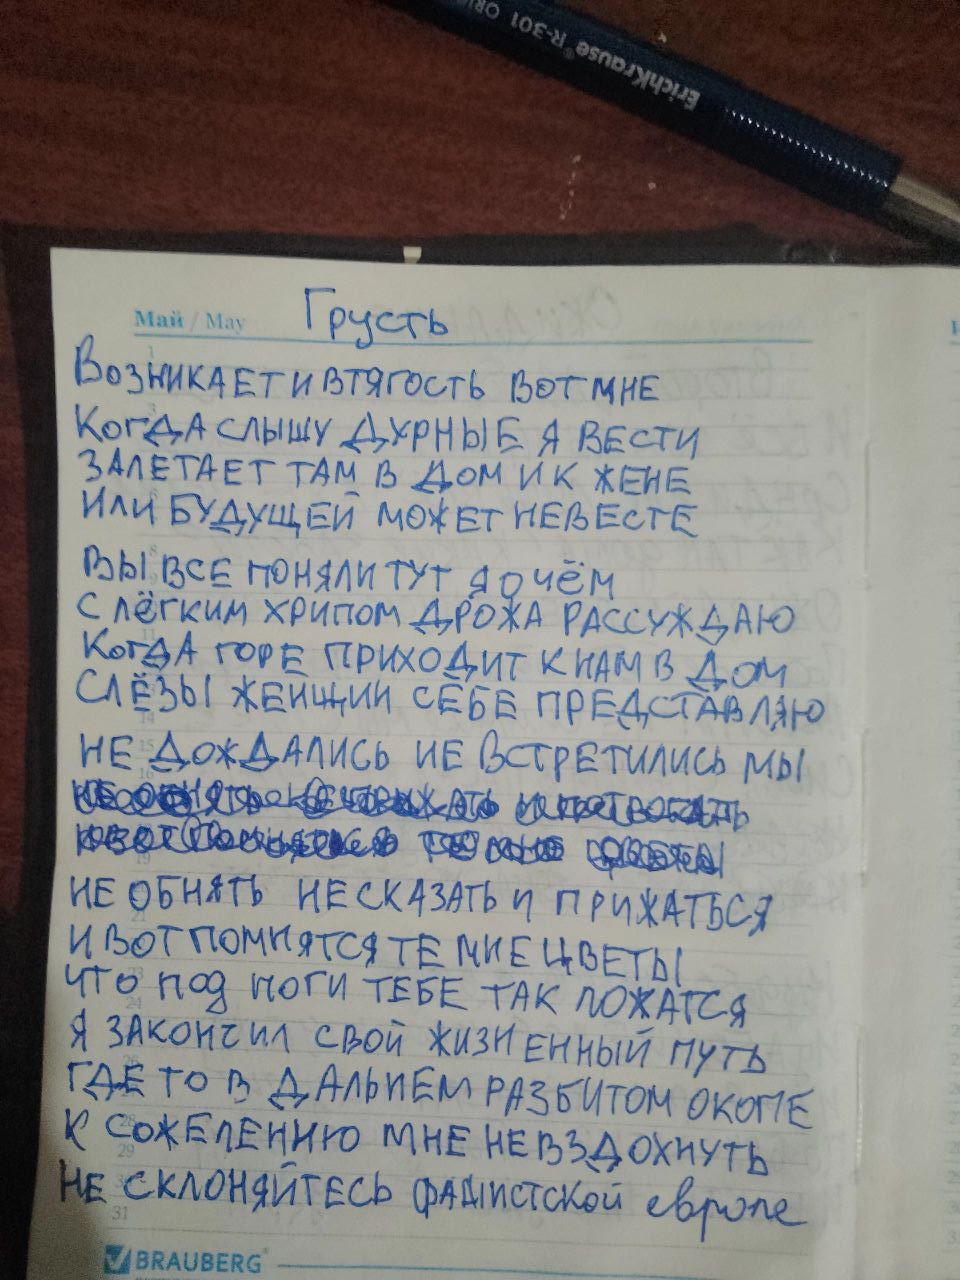 ErichKrause® R-301 ORI
Май / May
Грусть
ВОЗНИКАЕТ И ВТЯГОСТЬ ВОТ МНЕ
КОГДА СЛЫШУ ДУРНЫЕ Я ВЕСТИ
ЗАЛЕТАЕТ ТАМ В ДОМ И К ЖЕНЕ
ИЛИ БУДУЩЕЙ МОЖЕТ НЕВЕСТЕ
ВЫ ВСЕ ПОНЯЛИ ТУТ Я О ЧЁМ
С ЛЁГКИМ ХРИПОМ ДРОЖА РАССУЖДАЮ
КОГДА ГОРЕ ПРИХОДИТ К НАМ В ДОМ
СЛЁЗЫ ЖЕНЩИН СЕБЕ ПРЕДСТАВЛЯЮ
НЕ ДОЖДАЛИСЬ НЕ ВСТРЕТИЛИСЬ МЫ
НЕ ОБНЯТЬ НЕ СКАЗАТЬ И ПРИЖАТЬСЯ
И ВОТ ПОМНЯТСЯ ТЕ МНЕ ЦВЕТЫ
ЧТО ПОД НОГИ ТЕБЕ ТАК ЛОЖАТСЯ
Я ЗАКОНЧИЛ СВОЙ ЖИЗНЕННЫЙ ПУТЬ
ГДЕ ТО В ДАЛЬНЕМ РАЗБИТОМ ОКОПЕ
К СОЖЕЛЕНИЮ МНЕ НЕ ВЗДОХНУТЬ
НЕ СКЛОНЯЙТЕСЬ фАШИСТСКОЙ европе
31
BRAUBERG®